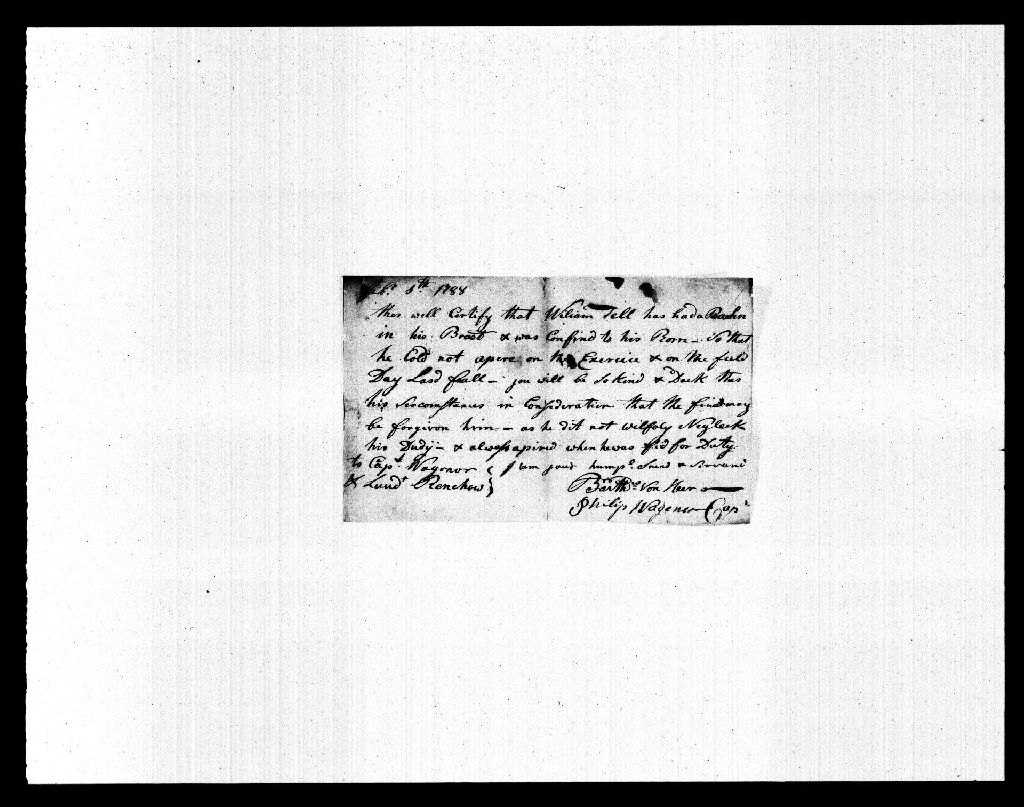 8th 1788
this will Certify that Wiliam Tell has had a
in his Breast & was Confind to his Room - So that
he Cold not apere on the Exercice & on the field
Day Last fall - you will be So Kind & Teck this
his Sircomstances in Consideration that the fine may
be forgiven him - as he dit not wilfoly Negleck
his Dudy - & always apired when he was for Duty
to Capt. Wagoner { I am your humpe. & Servant
& Lund. Renchaw }
Barthe. Von Heer
Philip Wagener Capt